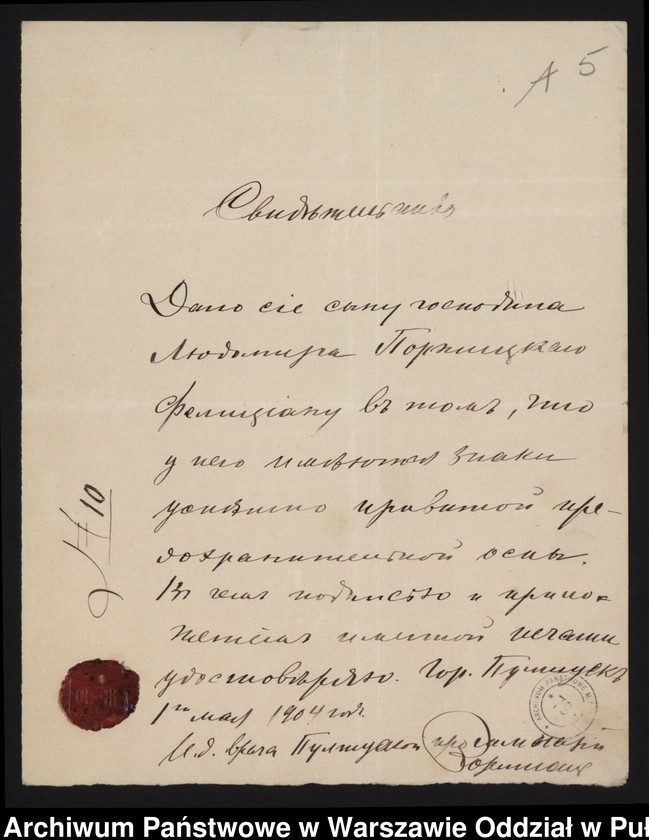 А 5
Свидѣтельство
Дано сіе сыну господина
Людомира Порницкаго
Фелиціану въ томъ, что
у него имѣются знаки
успѣшно привитой пре-
дохранительной оспы.
Въ чемъ подписью и прило-
женіемъ именной печати
удостовѣряю. Гор. Пултускъ
1го мая 1904 года.
И. д. врача Пултуской
№ 10
ARCHIWUM PAŃSTWOWE
Archiwum Państwowe w Warszawie Oddział w Puł